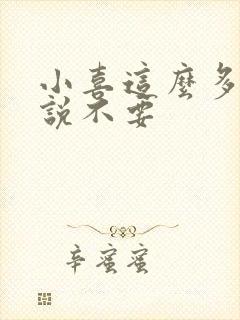 小喜這麼多
說不要
辛蜜蜜